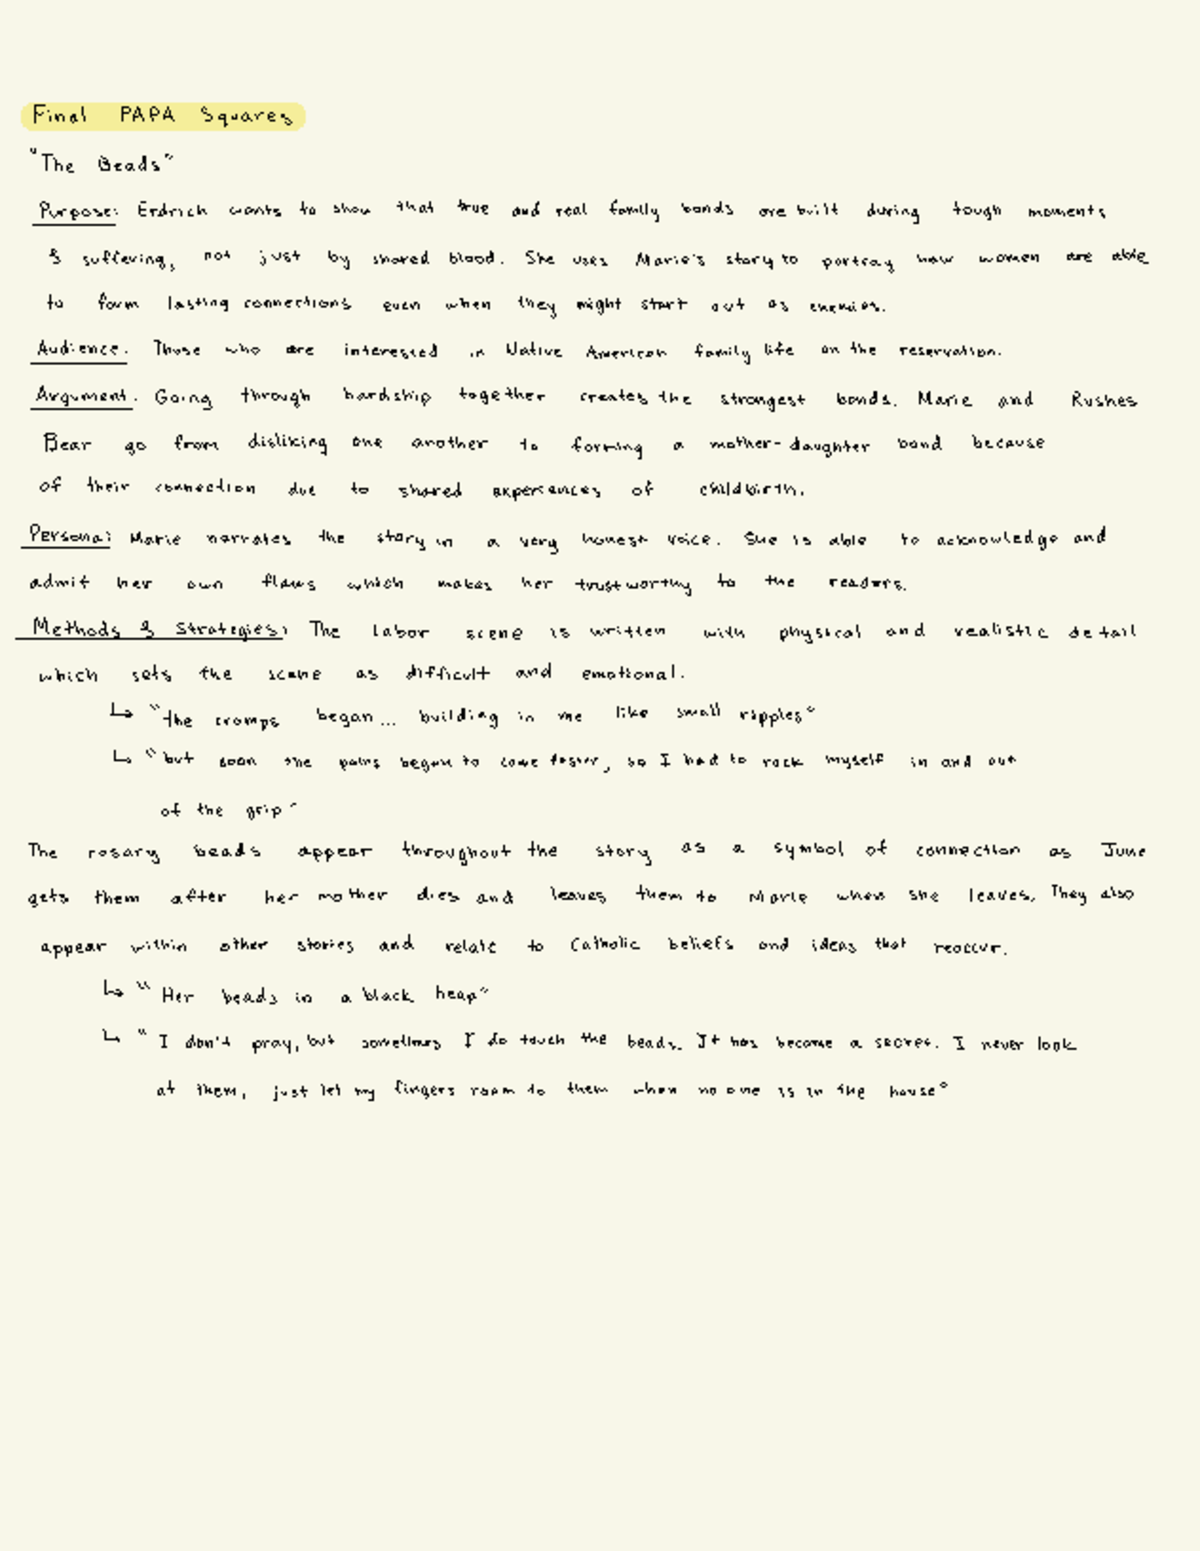 Final PAPA Squares
"The Beads"
Purpose: Erdrich wants to show that true and real family bonds are built during tough moments
& suffering, not just by shared blood. She uses Marie's story to portray how women are able
to form lasting connections even when they might start out as enemies.
Audience: Those who are interested in Native American family life on the reservation.
Argument: Going through hardship together creates the strongest bonds. Marie and Rushes
Bear go from disliking one another to forming a mother-daughter bond because
of their connection due to shared experiences of childbirth.
Persona: Marie narrates the story in a very honest voice. She is able to acknowledge and
admit her own flaws which makes her trustworthy to the readers.
Methods & Strategies: The labor scene is written with physical and realistic detail
which sets the scene as difficult and emotional.
↳ "the cramps began... building in me like small ripples"
↳ "but soon the pains began to come faster, so I had to rock myself in and out
of the grip"
The rosary beads appear throughout the story as a symbol of connection as June
gets them after her mother dies and leaves them to Marie when she leaves. They also
appear within other stories and relate to Catholic beliefs and ideas that reoccur.
↳ "Her beads in a black heap"
↳ "I don't pray, but sometimes I do touch the beads. It has become a secret. I never look
at them, just let my fingers roam to them when no one is in the house"